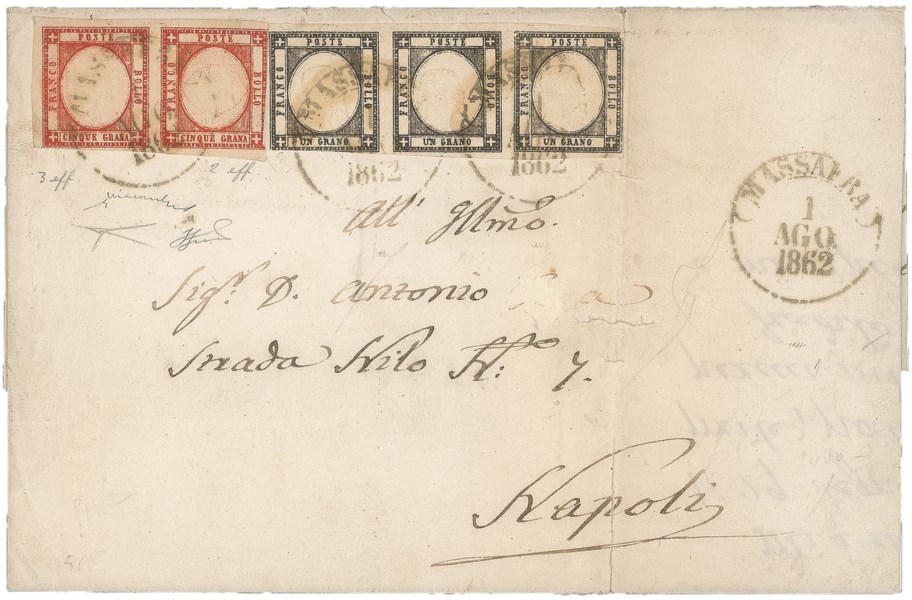 POSTE POSTE POSTE POSTE POSTE
FRANCO BOLLO FRANCO BOLLO FRANCO BOLLO FRANCO BOLLO FRANCO BOLLO
CINQUE GRANA CINQUE GRANA UN GRANO UN GRANO UN GRANO
1862 1862
3 eff. 2 eff.
MASSAFRA
1
AGO
1862
All' Illmo.
Sigr. D. Antonio
Strada Nilo No: 7.
Napoli